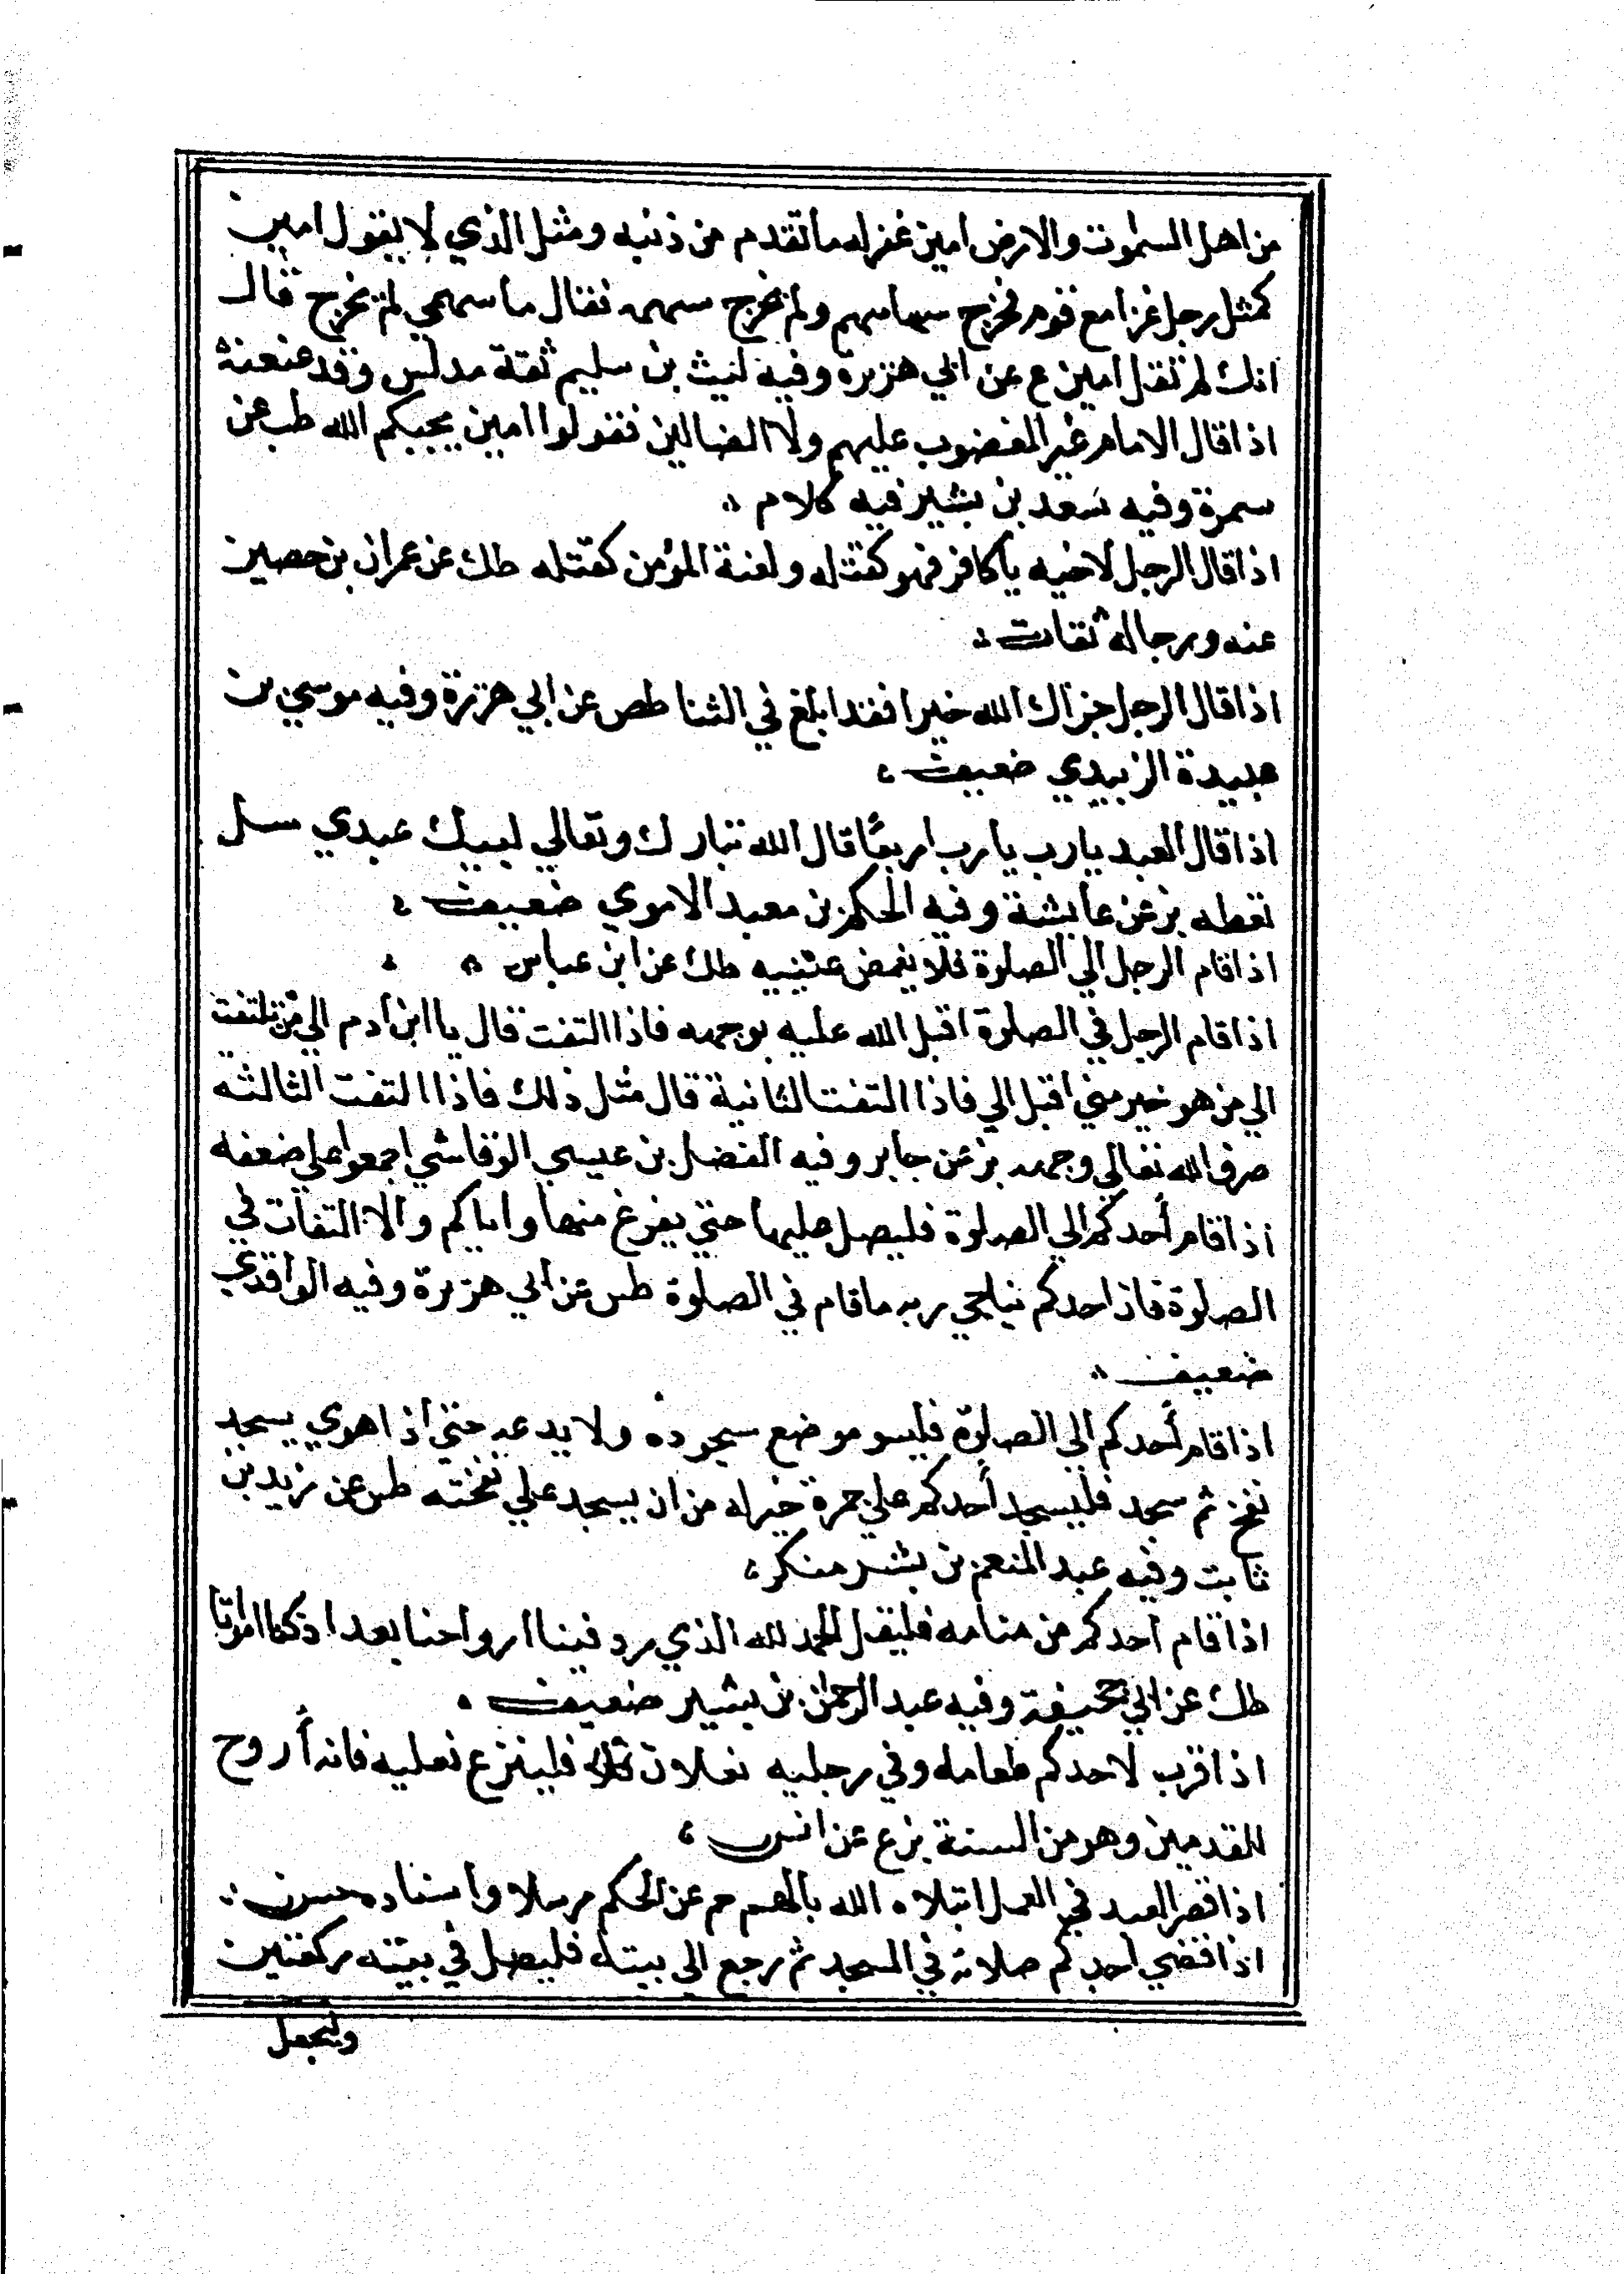 من اهل السموت والارض امين غفر له ما تقدم من ذنبه ومثل الذي لا يقول امين
كمثل رجل غزا مع قوم فخرج سهامهم ولم يخرج سهمه فقال ما سهمي لم يخرج قال
انك لم تقل امين ع عن ابي هريرة وفيه ليث بن سليم ثقة مدلس وقد عنعنه
اذا قال الامام غير المغضوب عليهم ولا الضالين فقولوا امين يجبكم الله طب عن
سمرة وفيه سعد بن بشير فيه كلام
اذا قال الرجل لاخيه يا كافر فهو كقتله ولعنة المؤمن كقتله طك عن عمران بن حصين
عنه ورجاله ثقات
اذا قال الرجل جزاك الله خيرا فقد ابلغ في الثنا طص عن ابي هريرة وفيه موسي بن
عبيدة الزبيدي ضعيف
اذا قال العبد يا رب يا رب اربعًا قال الله تبارك وتعالي لبيك عبدي سل
تعطه بز عن عايشة وفيه الحكم بن معبد الاموي ضعيف
اذا قام الرجل الي الصلوة فلا يغمض عينيه طك عن ابن عباس
اذا قام الرجل في الصلوة اقبل الله عليه بوجهه فاذا التفت قال يا ابن ادم الي من تلتفت
الي من هو خير مني اقبل الي فاذا التفت الثانية قال مثل ذلك فاذا التفت الثالثه
صرف الله تعالي وجهه بز عن جابر وفيه الفضل بن عيسي الرقاشي اجمعوا علي ضعفه
اذا قام أحدكم الي الصلوة فليصل عليها حتي يفرغ منها واياكم والالتفات في
الصلوة فان احدكم يناجي ربه ما قام في الصلوة طس عن ابي هريرة وفيه الواقدي
ضعيف
اذا قام أحدكم الي الصلوة فليسو موضع سجوده ولا يدعه حتي اذا اهوي يسجد
نفخ ثم سجد فليسجد أحدكم علي جمرة خير له من ان يسجد علي نفخته طس عن زيد بن
ثابت وفيه عبد المنعم بن بشر منكر
اذا قام احدكم من منامه فليقل الحمد لله الذي رد فينا ارواحنا بعد اذ كنا امواتا
طك عن ابي جحيفة وفيه عبد الرحمن بن بشير ضعيف
اذا قرب لاحدكم طعامه وفي رجليه نعلان فلينزع نعليه فانه أروح
للقدمين وهو من السنة بز ع عن انس
اذا قصر العبد في العمل ابتلاه الله بالهم حم عن الحكم مرسلا واسناده حسن
اذا قضي احدكم صلاته في المسجد ثم رجع الي بيته فليصل في بيته ركعتين
وليجعل